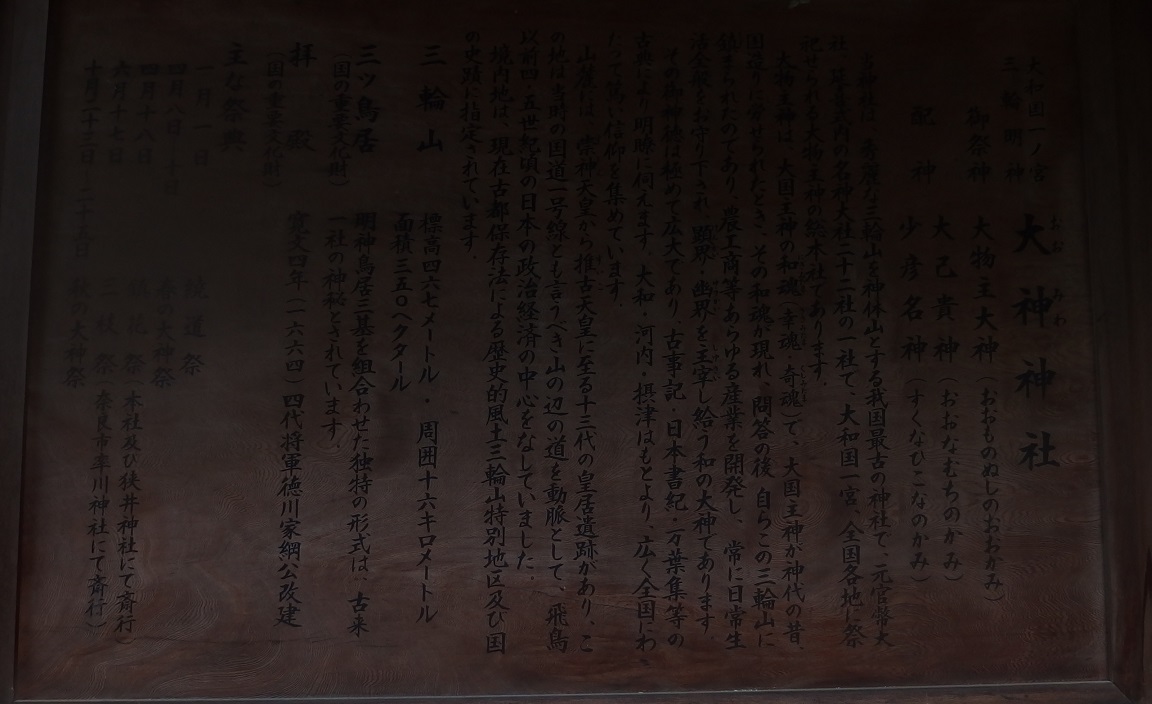 大和国一ノ宮
三輪明神
大神神社
おおみわ
御祭神 大物主大神（おおものぬしのおおかみ）
配神 大己貴神（おおなむちのかみ）
少彦名神（すくなひこなのかみ）
当神社は、秀麗な三輪山を神体山とする我国最古の神社で、元官幣大
社、延喜式内の名神大社二十二社の一社で、大和国一宮、全国各地に祭
祀せられる大物主神の総本社であります。
大物主神は、大国主神の和魂（幸魂、奇魂）で、大国主神が神代の昔、
国造りに労せられたとき、その和魂が現れ、問答の後 自らこの三輪山に
鎮まられたのであり、農工商等あらゆる産業を開発し、常に日常生
活全般をお守り下され、顕界・幽界を主宰し給う和の大神であります。
その御神徳は極めて広大であり、古事記・日本書紀・万葉集等の
古典により明瞭に伺えます。大和・河内・摂津はもとより、広く全国にわ
たって篤い信仰を集めています。
山麓には、崇神天皇から推古天皇に至る十三代の皇居遺跡があり、こ
の地は当時の国道一号線とも言うべき山の辺の道を動脈として、飛鳥
以前四・五世紀頃の日本の政治経済の中心をなしていました。
境内地は、現在古都保存法による歴史的風土三輪山特別地区及び国
の史蹟に指定されています。
三輪山 標高四六七メートル・周囲十六キロメートル
面積三五〇ヘクタール
三ツ鳥居 明神鳥居三基を組合わせた独特の形式は、古来
（国の重要文化財） 一社の神秘とされています。
拝殿 寛文四年（一六六四）四代将軍徳川家綱公改建
（国の重要文化財）
主な祭典
一月一日 繞道祭
四月八日―十日 春の大神祭
四月十八日 鎮花祭（本社及び狭井神社にて斎行）
六月十七日 三枝祭（奈良市率川神社にて斎行）
十月二十三日―二十五日 秋の大神祭